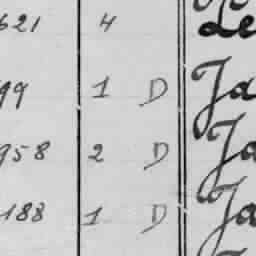 621 4 Le
99 1 D Ja
958 2 D Ja
188 1 D Ja